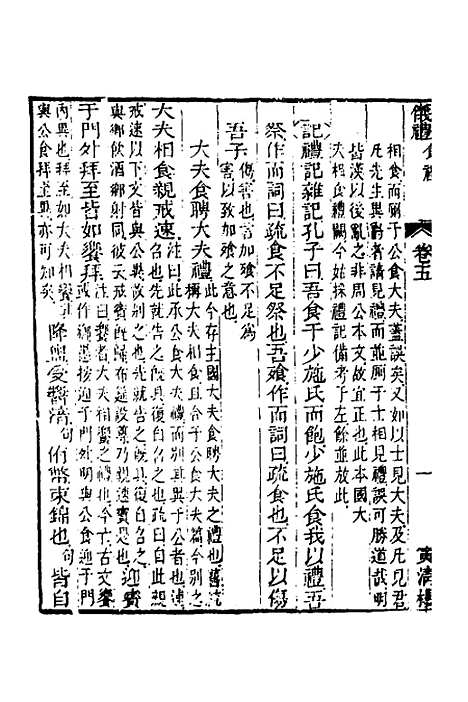 儀禮 食禮 卷五 一
相食而附于公食大夫蓋誤矣又如以士見大夫及凡見君
凡先生異爵者請見禮而並附于士相見禮誤可勝道哉明
皆漢以後亂之非周公本文故宜正也此本國大
夫相食禮闕今姑採禮記備考于左餘並放此
記禮記雜記孔子曰吾食于少施氏而飽少施氏食我以禮吾
祭作而詞曰疏食不足祭也吾飧作而詞曰疏食也不足以傷
吾子傷害也言加飧不足爲
害以致加飧之意也
大夫食聘大夫禮此今存主國大夫食聘大夫之禮也舊混
稱大夫相食且合于公食大夫篇今別之
大夫相食親戒速注曰此承公食大夫禮而別其異于公者也速
召也先就告之歸具既具復自召之疏曰自此
戒速以下文皆與公異故別之也
與鄉飲酒鄉射
也彼云戒賓
尊乃親速賓是也迎賓
于門外拜至皆如饗拜注曰饗大夫相饗之禮也今亡古文饗
或作鄉
迎于門外明與公食迎于門
內異也拜至如大夫相饗
與公食拜至異亦可知矣
降盥受醬湆侑幣束錦也皆自